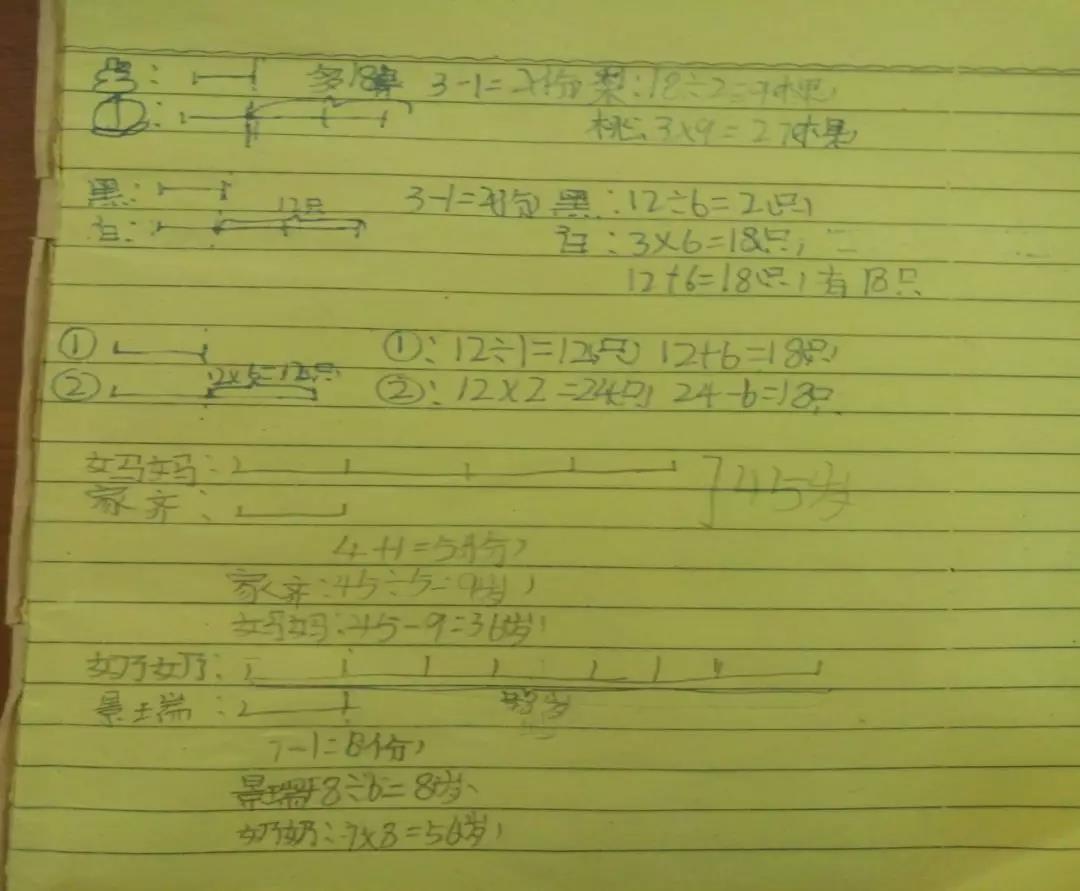 多18棵 3-1=2(份) 梨:18÷2=9(棵)
桃:3×9=27(棵)
黑: 3-1=2(份) 黑:12÷6=2(只)
白: 12只 白:3×6=18(只)
12+6=18(只) 有18只
① ①:12÷1=12(只) 12+6=18(只)
② 2×6=12(只) ②:12×2=24(只) 24-6=18只
妈妈: 45岁
家齐:
4+1=5(份)
家齐:45÷5=9(岁)
妈妈:45-9=36(岁)
奶奶:
景瑞: 48岁
7-1=6(份)
景瑞48÷6=8(岁)
奶奶:7×8=56(岁)